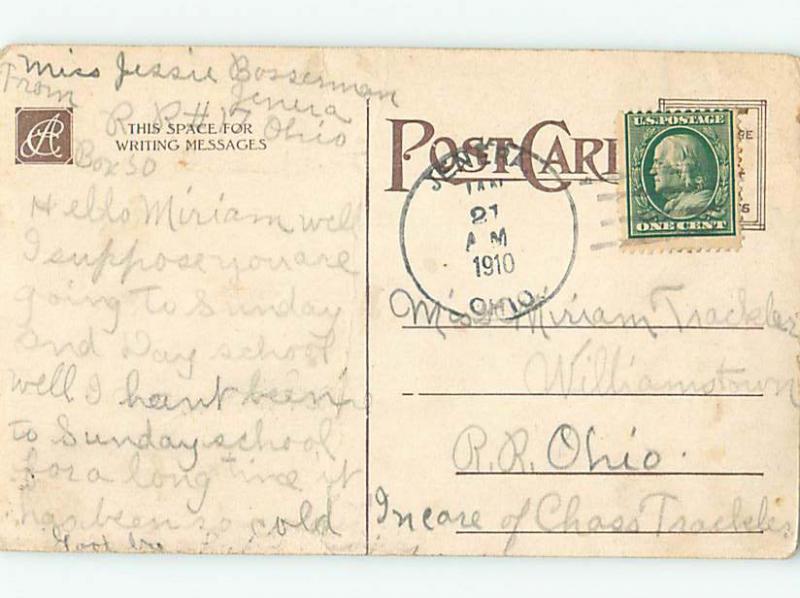 Miss Jessie Bosserman
From Jenera
R. R. #17 Ohio
Box 50
THIS SPACE FOR
WRITING MESSAGES
Hello Miriam well
I suppose you are
going to Sunday
and Day school
well I hant been
to Sunday school
for a long time it
has been so cold
Good by
POST CARD
JENERA
21
A M
1910
OHIO
U.S. POSTAGE
ONE CENT
Miss Miriam Trackler
Williamstown
R. R. Ohio.
In care of Chass Trackler